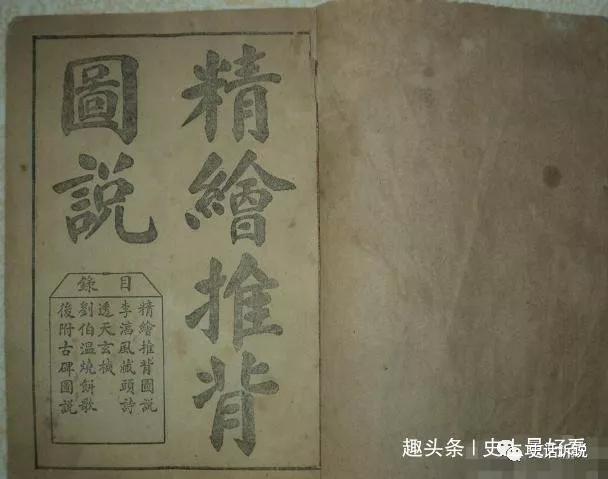 精繪推背
圖說
目錄
精繪推背圖說
李淳風藏頭詩
透天玄機
劉伯溫燒餅歌
後附古碑圖說
趣头条 | 史
最好看